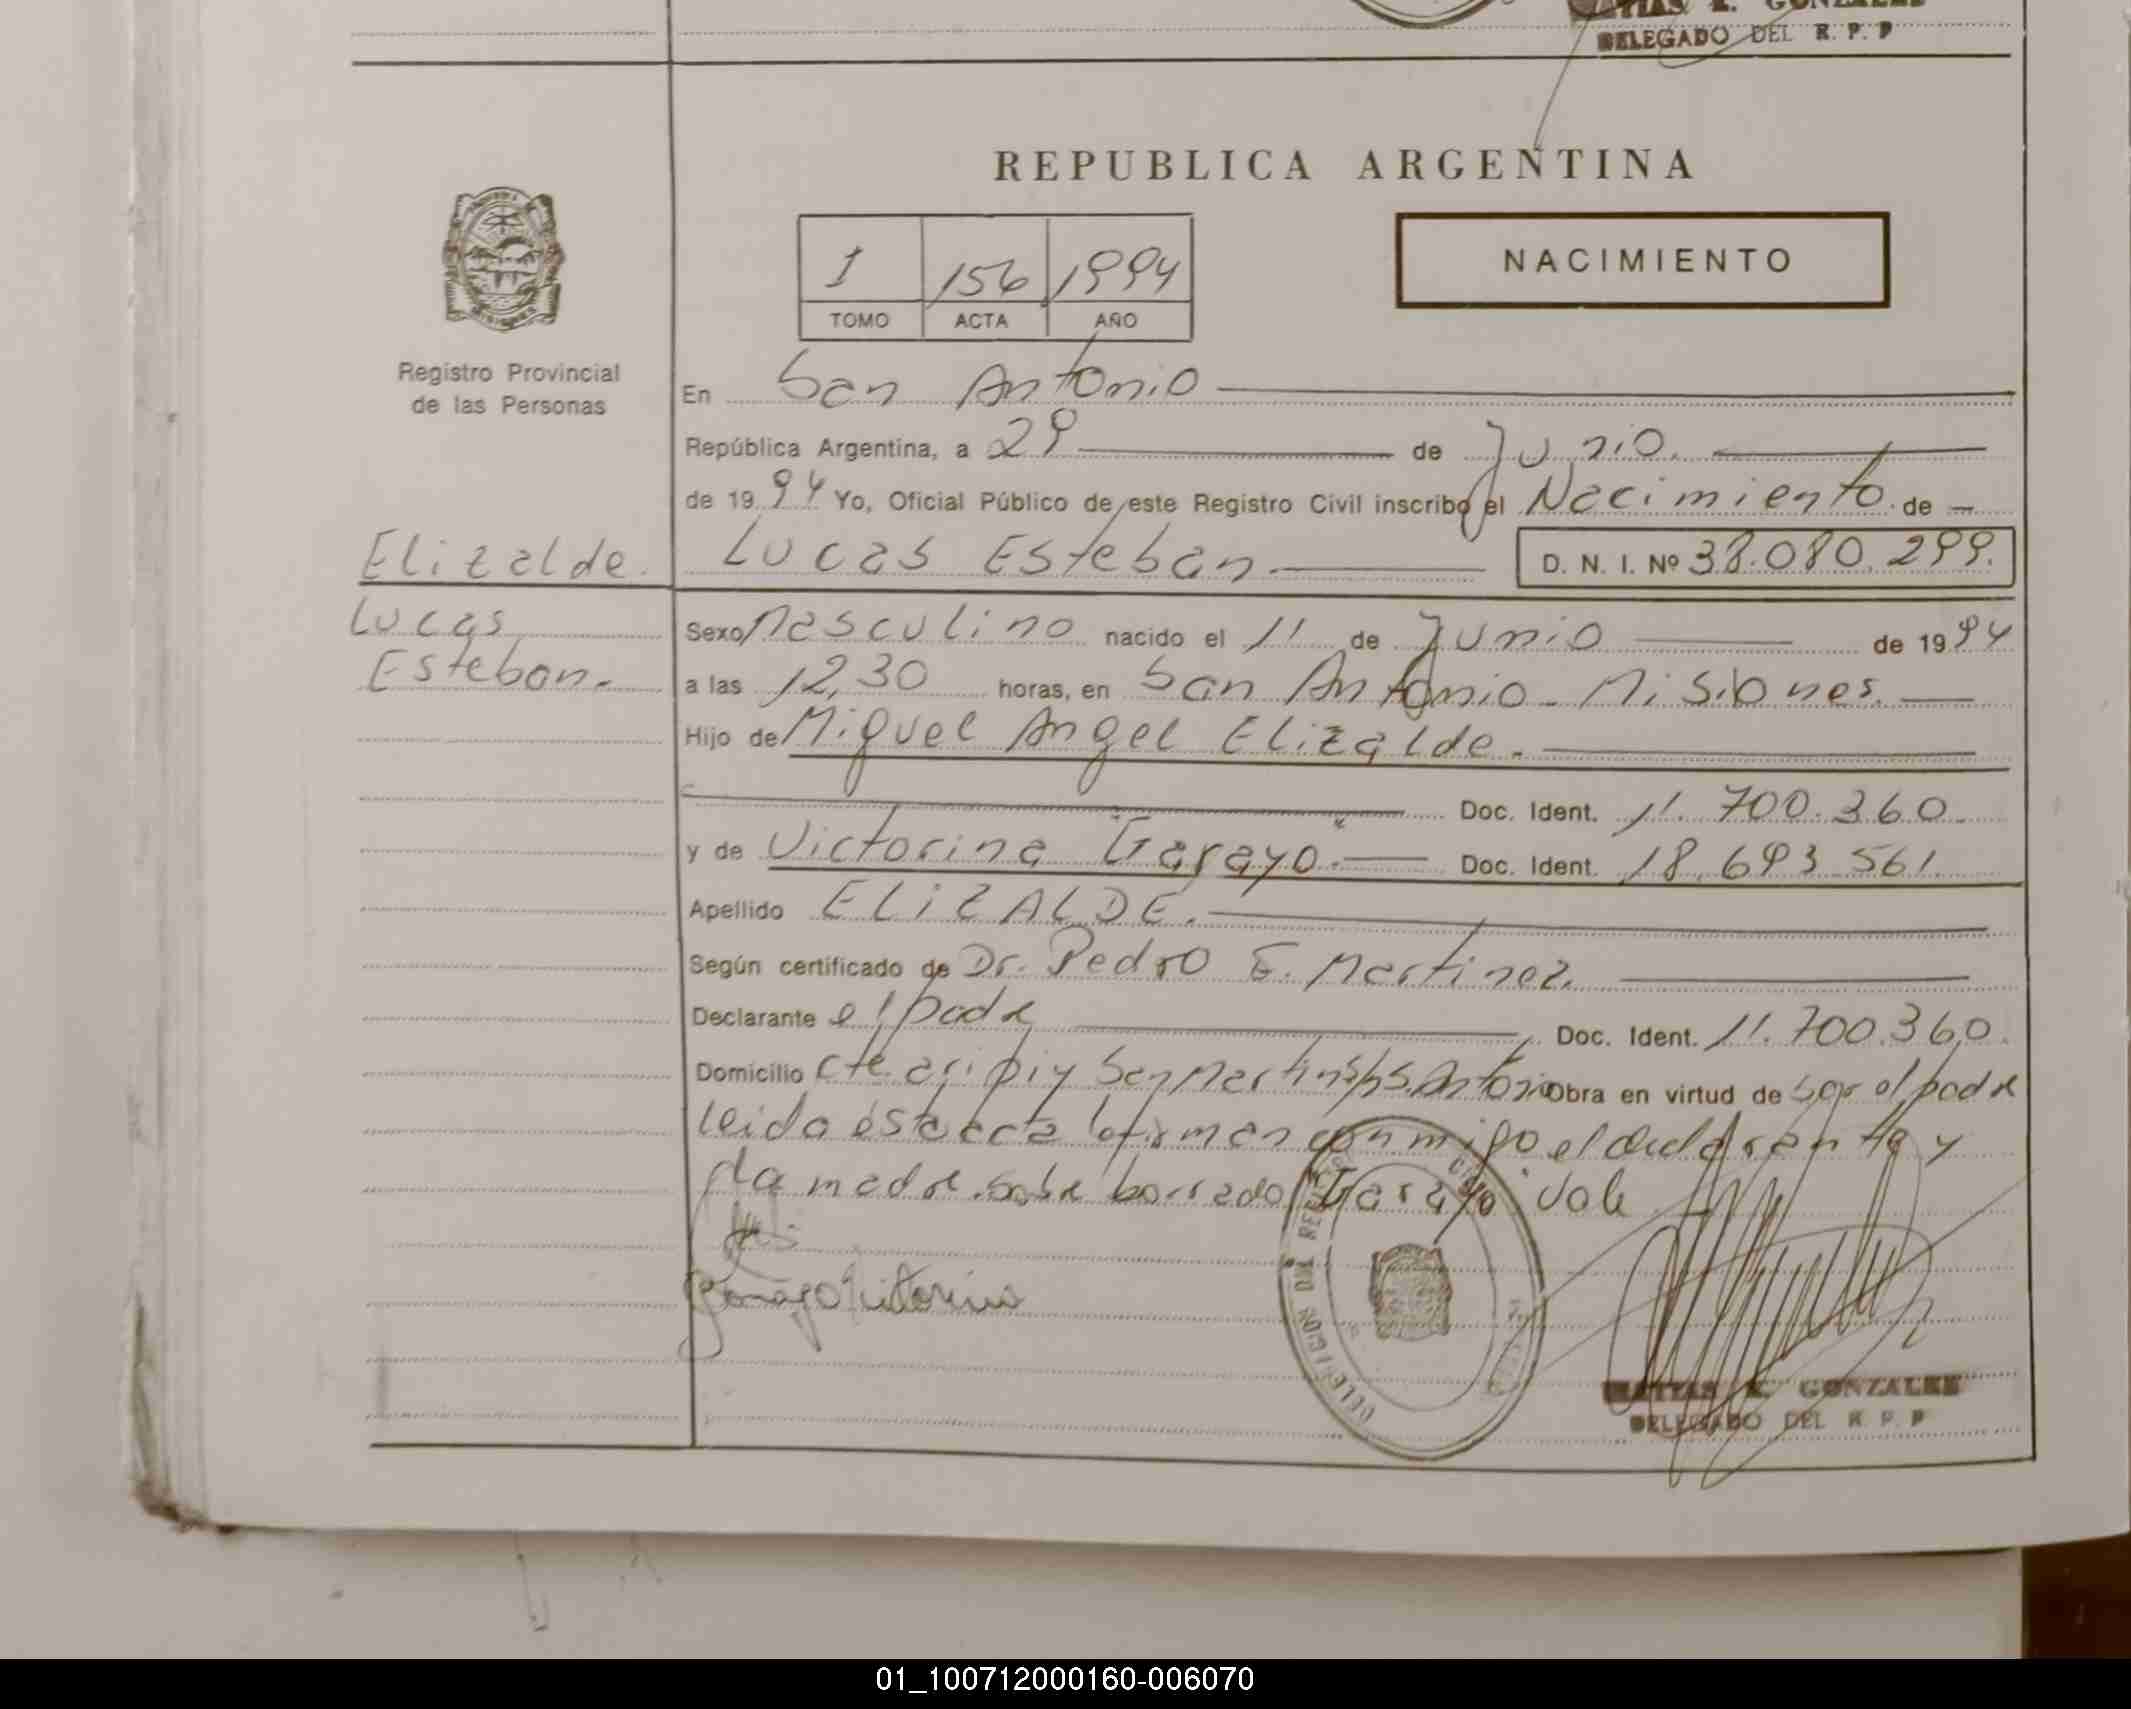 MATIAS E. GONZALEZ
DELEGADO DEL R. P. P
REPUBLICA ARGENTINA
1 156 1994
TOMO ACTA AÑO
NACIMIENTO
Registro Provincial
de las Personas
En San Antonio
República Argentina, a 29 de Junio.
de 1994 Yo, Oficial Público de este Registro Civil inscribo el Nacimiento de
Elizalde. Lucas Esteban D. N. I. Nº 38.080.299.
Lucas
Esteban.
Sexo Masculino nacido el 11 de Junio de 1994
a las 12,30 horas, en San Antonio - Misiones.
Hijo de Miguel Angel Elizalde.
Doc. Ident. 11.700.360.
y de Victorina Garayo. Doc. Ident. 18.693.561.
Apellido ELIZALDE.
Según certificado de Dr. Pedro E. Martinez.
Declarante el padre Doc. Ident. 11.700.360.
Domicilio San Martin S. Antonio Obra en virtud de ser el padre
leida esta acta la firman conmigo el declarante y
la madre. sobre borrado Garayo. Vale
Garayo Vitorina
DELEGACION DEL REGISTRO
MATIAS E. GONZALEZ
DELEGADO DEL R. P. P
01_100712000160-006070